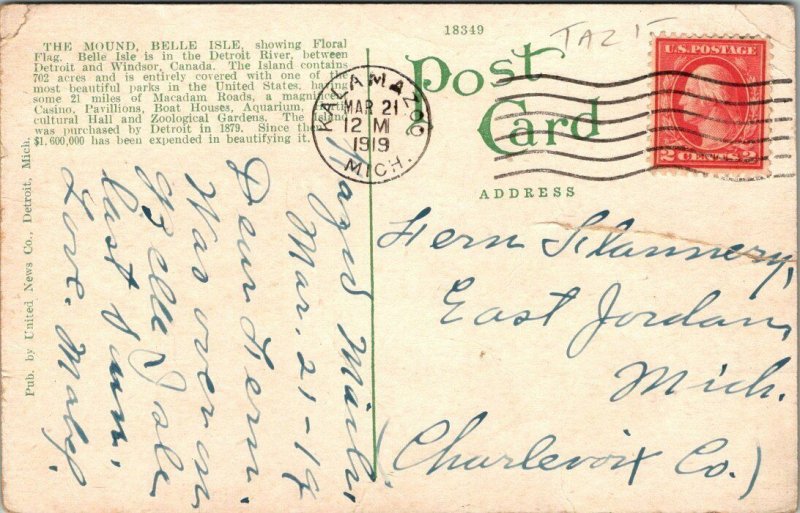 18349
TAZ 15
THE MOUND, BELLE ISLE, showing Floral
Flag. Belle Isle is in the Detroit River, between
Detroit and Windsor, Canada. The Island contains
702 acres and is entirely covered with one of the
most beautiful parks in the United States, having
some 21 miles of Macadam Roads, a magnificent
Casino, Pavillions, Boat Houses, Aquarium,
cultural Hall and Zoological Gardens. The Island
was purchased by Detroit in 1879. Since then
$1,600,000 has been expended in beautifying it.
Post
Card
ADDRESS
KALAMAZOO
MAR 21
12 M
1919
MICH.
U.S. POSTAGE
2 CENTS 2
Pub. by United News Co., Detroit, Mich.
Kazoo Mich.
Mar. 21-19
Dear Fern.
Was over on
Belle Isle
last Sun.
Love. Mabel.
Fern Flannery,
East Jordan,
Mich.
(Charlevoix Co.)